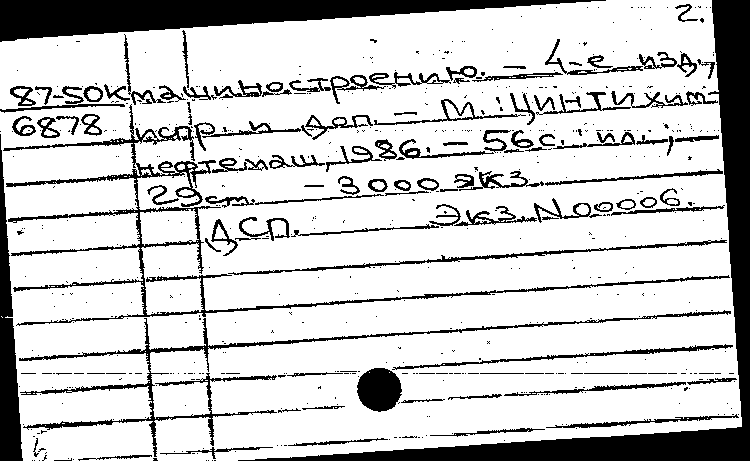 2.
87-50К машиностроению. – 4-е изд.,
6878 испр. и доп. – М.: ЦИНТИхим-
нефтемаш, 1986. – 56с.: ил.;
29 см. – 3000 экз
ДСП. Экз. N 00006.